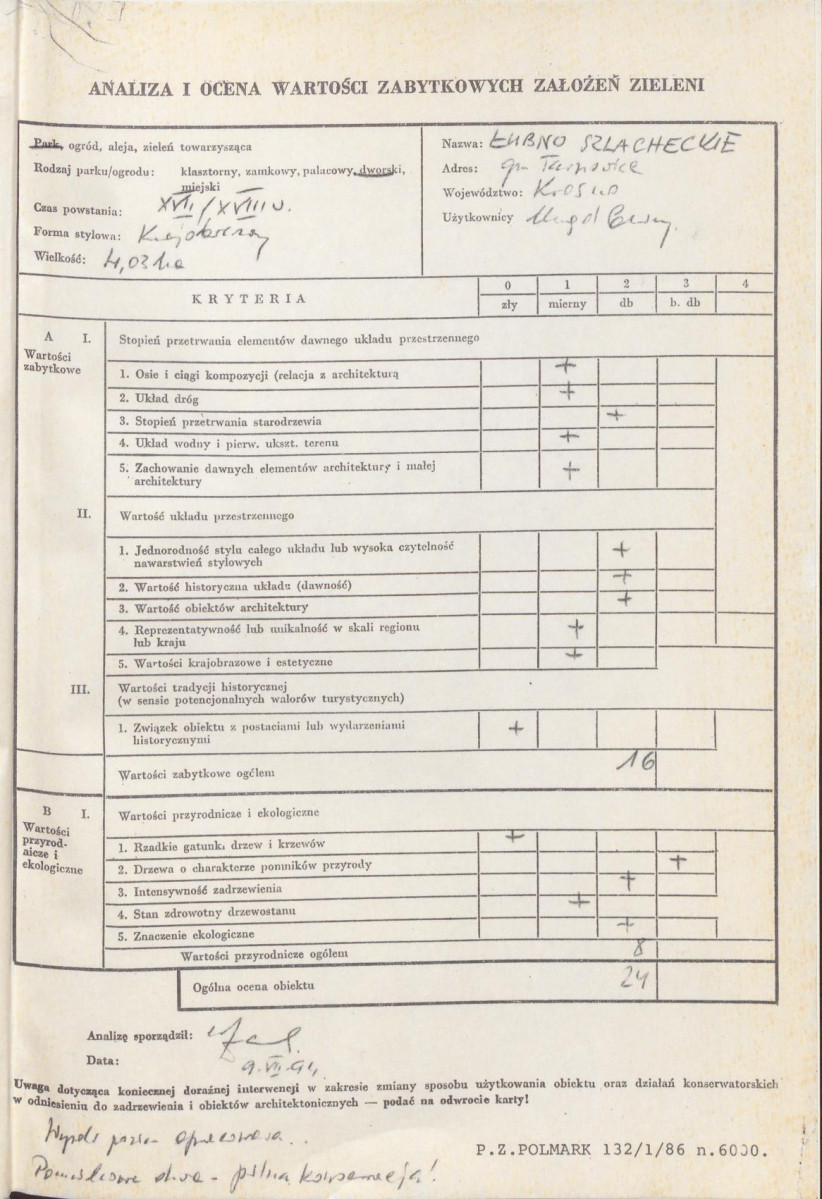 ANALIZA I OCENA WARTOŚCI ZABYTKOWYCH ZAŁOŻEŃ ZIELENI
Park, ogród, aleja, zieleń towarzysząca
Rodzaj parku/ogrodu: klasztorny, zamkowy, pałacowy, dworski,
miejski
Czas powstania: XVII/XVIII w.
Forma stylowa: Krajobrazowy
Wielkość: 4,03 ha
Nazwa: ŁUBNO SZLACHECKIE
Adres: gm.
Województwo: Krosno
Użytkownicy
KRYTERIA
0 1 2 3 4
zły mierny db b. db
A I. Stopień przetrwania elementów dawnego układu przestrzennego
Wartości
zabytkowe
1. Osie i ciągi kompozycji (relacja z architekturą +
2. Układ dróg +
3. Stopień przetrwania starodrzewia +
4. Układ wodny i pierw. ukszt. terenu +
5. Zachowanie dawnych elementów architektury i małej
architektury +
II. Wartość układu przestrzennego
1. Jednorodność stylu całego układu lub wysoka czytelność
nawarstwień stylowych +
2. Wartość historyczna układu (dawność) +
3. Wartość obiektów architektury +
4. Reprezentatywność lub unikalność w skali regionu
lub kraju +
5. Wartości krajobrazowe i estetyczne +
III. Wartości tradycji historycznej
(w sensie potencjonalnych walorów turystycznych)
1. Związek obiektu z postaciami lub wydarzeniami
historycznymi +
Wartości zabytkowe ogółem 16
B I. Wartości przyrodnicze i ekologiczne
Wartości
przyrod-
nicze i
ekologiczne
1. Rzadkie gatunki drzew i krzewów +
2. Drzewa o charakterze pomników przyrody +
3. Intensywność zadrzewienia +
4. Stan zdrowotny drzewostanu +
5. Znaczenie ekologiczne +
Wartości przyrodnicze ogółem 8
Ogólna ocena obiektu 24
Analizę sporządził:
Data: 9.VII.94
Uwaga dotycząca koniecznej doraźnej interwencji w zakresie zmiany sposobu użytkowania obiektu oraz działań konserwatorskich
w odniesieniu do zadrzewienia i obiektów architektonicznych — podać na odwrocie karty!
pilna konserwacja!
P.Z.POLMARK 132/1/86 n.6000.